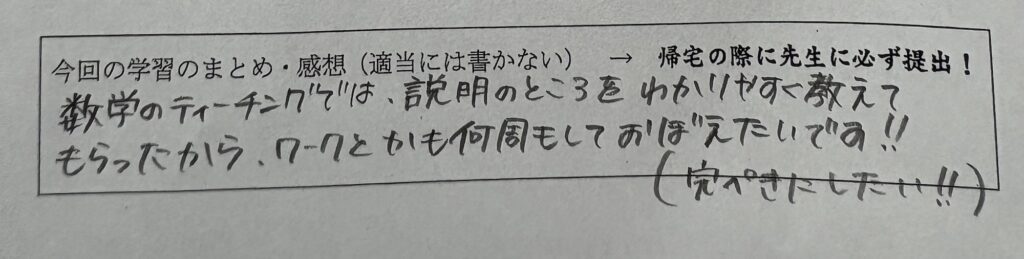 今回の学習のまとめ・感想（適当には書かない） → 帰宅の際に先生に必ず提出！
数学のティーチングでは、説明のところをわかりやすく教えて
もらったから、ワークとかも何周もしておぼえたいです!!
(完ぺきにしたい!!)